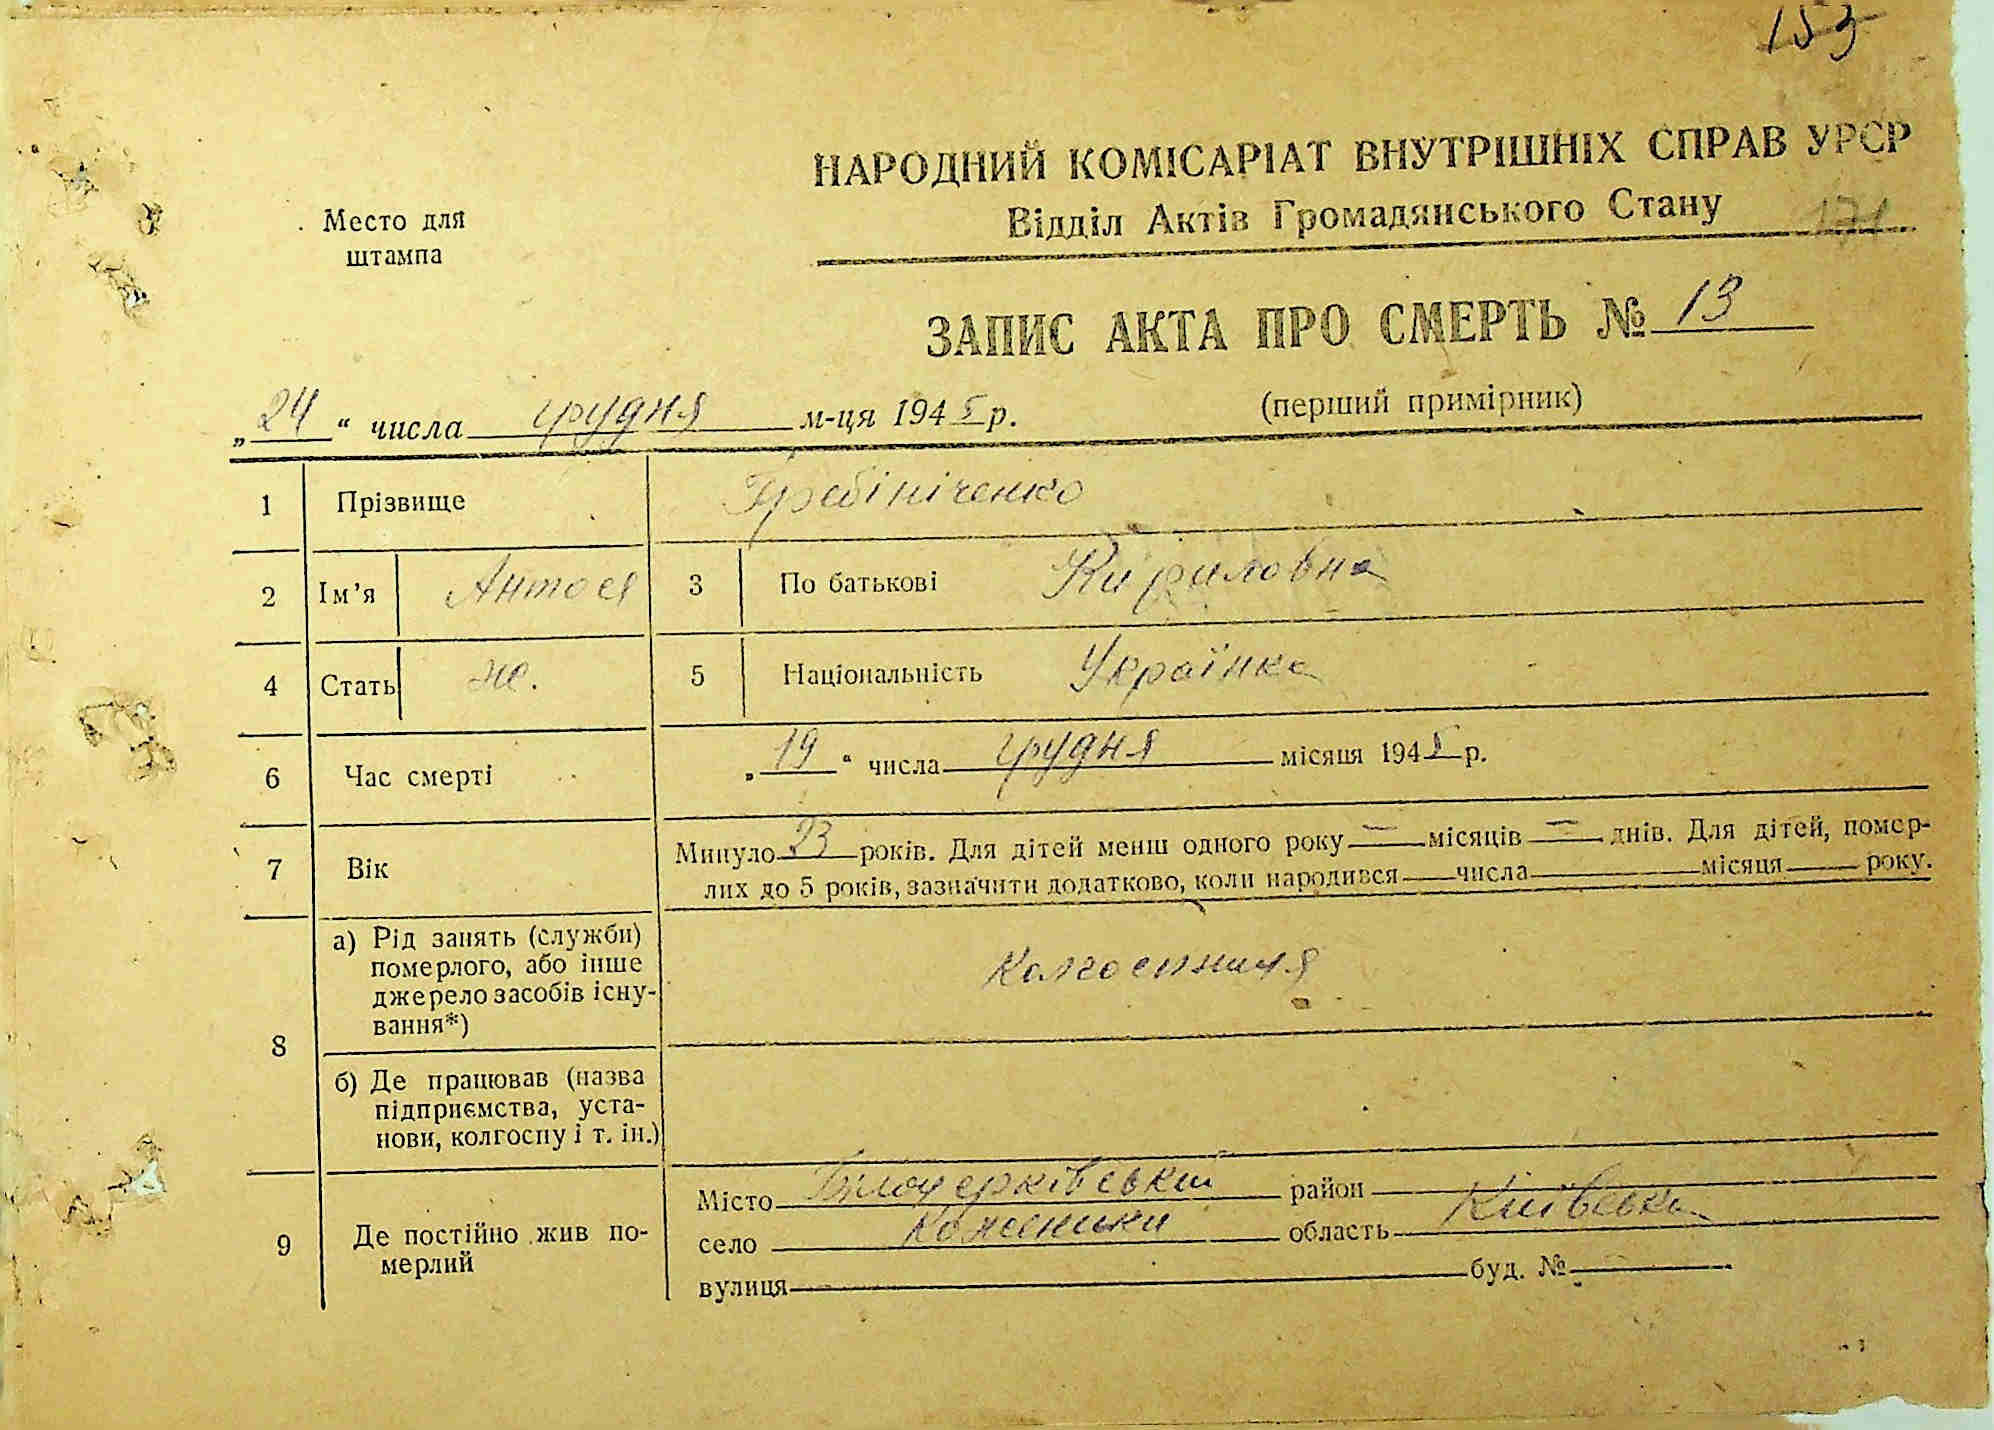 153
НАРОДНИЙ КОМІСАРІАТ ВНУТРІШНІХ СПРАВ УРСР
Место для штампа
Відділ Актів Громадянського Стану
171
ЗАПИС АКТА ПРО СМЕРТЬ № 13
„24“ числа грудня м-ця 1945 р. (перший примірник)
1 Прізвище Гребініченко
2 Ім’я Антося 3 По батькові Кириловна
4 Стать ж. 5 Національність Українка
6 Час смерті „19“ числа грудня місяця 1945 р.
7 Вік Минуло 23 років. Для дітей менш одного року — місяців — днів. Для дітей, помер-
лих до 5 років, зазначити додатково, коли народився числа місяця року.
8 а) Рід занять (служби)
померлого, або інше
джерело засобів існу-
вання*)
Колгоспниця
б) Де працював (назва
підприємства, уста-
нови, колгоспу і т. ін.)
9 Де постійно жив по-
мерлий
Місто Білоцерківський район
село область Київська
вулиця буд. №